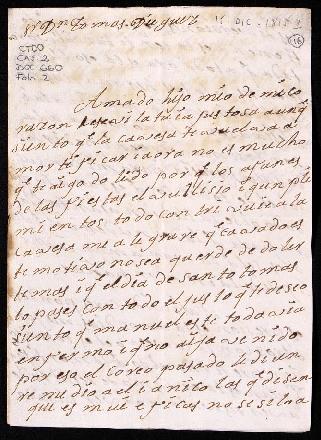 Sr Dn Tomas Dieguez
15 DIC. 1818
16
CTDO
CAJ. 2
DOC 660
Fol. 2
Amado hijo mio de mi co
razon resevi la tuia gustosa aunq
siento q la cavesa te vuelva a
mortificar aora no es mucho
q te aiga dolido por q los afanes
de las fiestas el vullisio i cunpli
mientos todo contrivuie a la
cavesa me alegrare q cavado es
te motivo no sea querde de doler
te mas i q el dia de santo tomas
lo pases con todo el justo q te deseo
siento q manuel este todavia
enfermo i q no aija venido
por esa el coreo pasado le di un
remedio a el ianito las q disen
que es mui eficas no se si la a